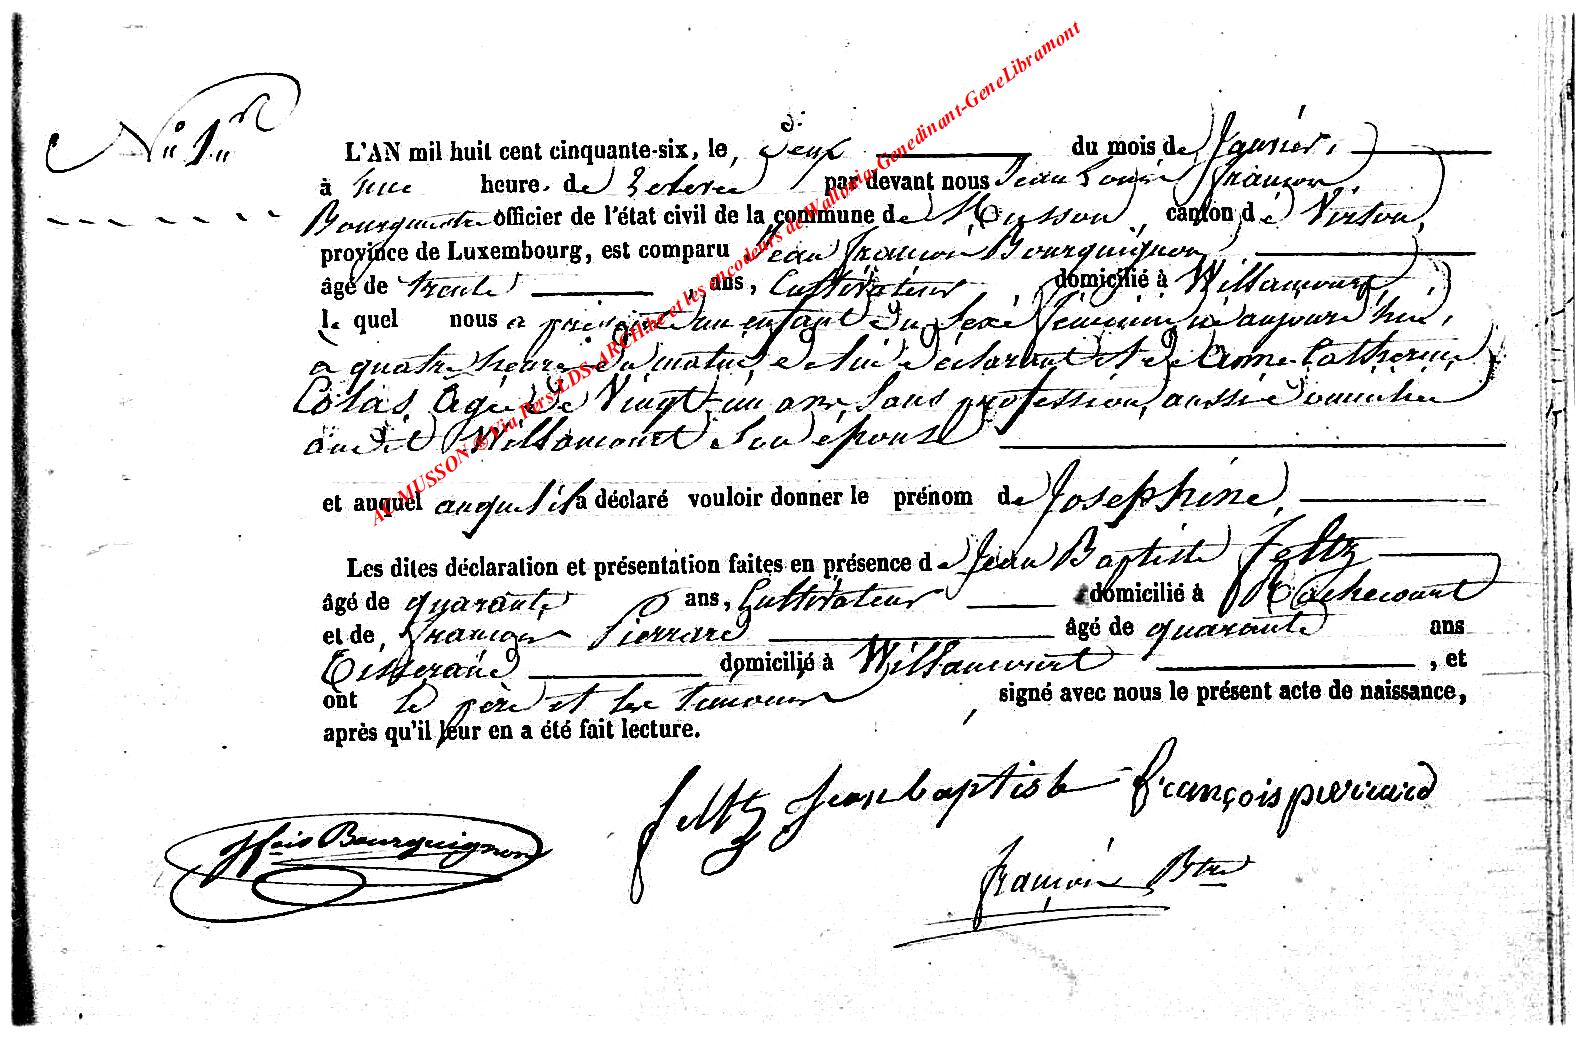 N° 1er
L'AN mil huit cent cinquante-six, le deux du mois de Janvier,
à une heure de relevée par devant nous Jean Louis François,
Bourgmestre officier de l'état civil de la commune de Musson, canton de Virton,
province de Luxembourg, est comparu Jean François Bourguignon
âgé de trente ans, Cultivateur domicilié à Willancourt,
le quel nous a présenté un enfant du sexe féminin né aujourd'hui,
a quatre heures du matin, de lui déclarant et de Anne Catherine
Colas, agée de Vingt-un ans, sans profession, aussi domiciliée
audit Willancourt son épouse
et auquel auquel il a déclaré vouloir donner le prénom de Joséphine,
Les dites déclaration et présentation faites en présence de Jean Baptiste Feltz
âgé de quarante ans, Cultivateur domicilié à Rachecourt
et de François Pierrard âgé de quarante ans
Tisserand domicilié à Willancourt, et
ont le père et les temoins signé avec nous le présent acte de naissance,
après qu'il leur en a été fait lecture.
feltz jean baptiste françois pierrard
Jfcois Bourguignon
François Btre
AC MUSSON @ Via Pers-LDS-ARCH.be et les encodeurs de Wallonia-Genedinant-GeneLibramont